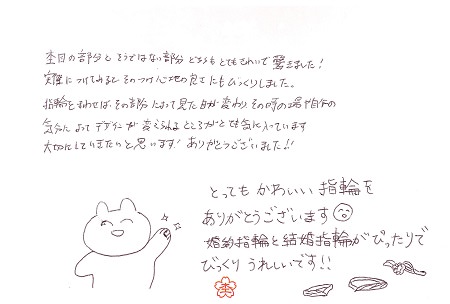 杢目の部分とそうではない部分どちらもとてもきれいで驚きました!
実際につけてみるとそのつけ心地の良さにもびっくりしました。
指輪をまわせば、その部分によって見た目が変わり、その時の場や自分の
気分によってデザインが変えられるところがとても気に入っています
大切にしていきたいと思います! ありがとうございました!!
とってもかわいい指輪を
ありがとうございます
婚約指輪と結婚指輪がぴったりで
びっくりうれしいです!!